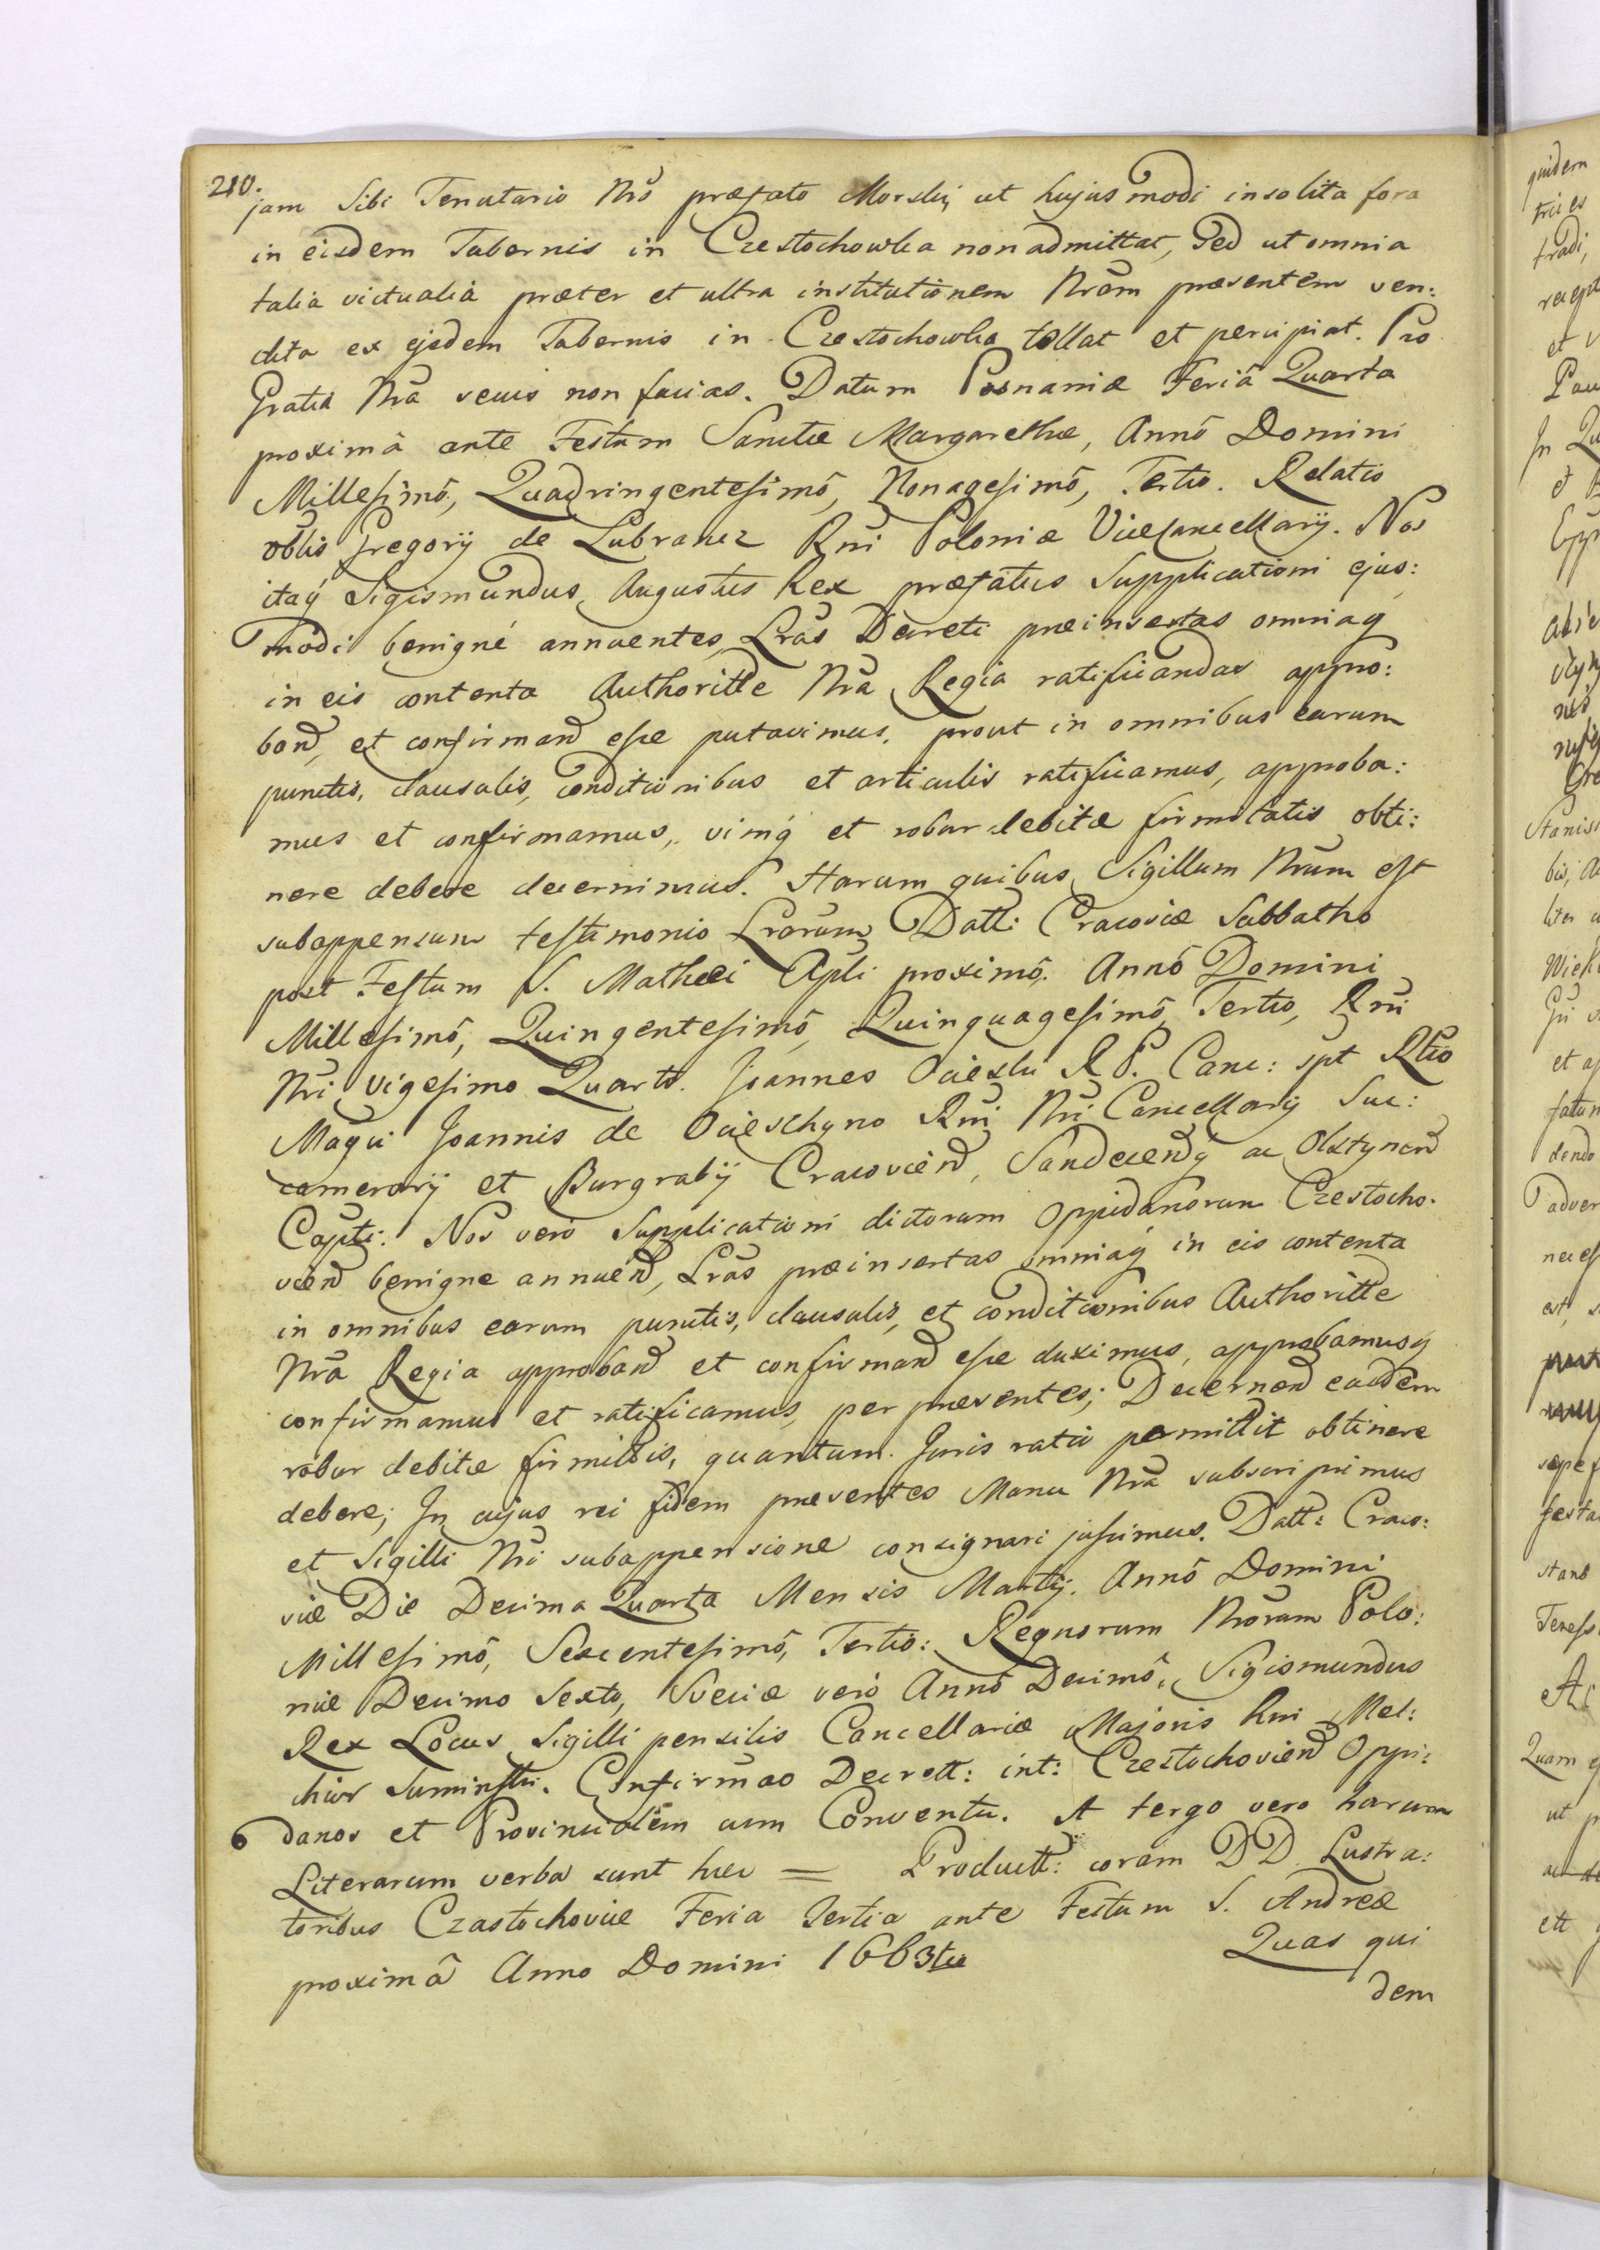 210.
jam Sibi Tenutario Nrõ præfato Morski, ut hujus modi insolita fora
in eisdem Tabernis in Czestochowka non admittat, Sed ut omnia
talia victualia præter et ultra institutionem Nrãm præsentem ven:
dita ex ejsdem Tabernis in Czestochowka tollat et percipiat. Pro
Gratia Nrã secus non facias. Datum Posnaniæ Feriâ Quarta
proximâ ante Festum Sanctæ Margarethæ, Annô Domini
Millesimô, Quadringentesimô, Nonagesimô, Tertio. Relatio
Gregorij de Lubrancz Rni Poloniæ ViceCancellarij. Nos
itaq́ Sigismundus Augustus Rex præfatus Supplicationi ejus:
modi benigné annuentes, Lrãs Decreti præinsertas omniaq́
in eis contenta Authoritte Nrã Regia ratificandas appro:
band, et confirmand esse putavimus, prout in omnibus earum
punctis, clausulis, conditionibus et articulis ratificamus, approba:
mus et confirmamus, vimq́ et robur debitæ firmitatis obti:
nere debere decernimus. Harum quibus Sigillum Nrum est
subappensum testimonio Lrarum Datt: Cracoviæ Sabbatho
post Festum S. Mathæi Apli proximô. Annô Domini
Millesimô, Quingentesimô, Quinquagesimô, Tertio, Rni
Nri vigesimo Quarto. Joannes Ocieski R P. Canc: spt Rltio
Magci Joannis de Ocieschyno Rni Nri Cancellarij Suc:
camerarij et Burgrabij Cracoviend, Sandecendq́ ac Olstynend
Capti: Nos veró Supplicationi dictorum Oppidanorum Czestocho.
viend benigne annuend, Lrãs præinsertas omniaq́ in eis contenta
in omnibus earum punctis, clausulis, et conditionibus Authoritte
Nrã Regia approband et confirmand esse duximus, approbamusq́
confirmamus et ratificamus, per præsentes; Decernend easdem
robur debitæ firmittis, quantum Juris ratio permittit obtinere
debere; In cujus rei fidem præsentes Manu Nrã subscripsimus
et Sigilli Nri subappensione consignari jussimus. Datt: Craco:
viæ Die Decima Quarta Mensis Martij. Annô Domini
Millesimô, Sexcentesimô, Tertio: Regnorum Nrorum Polo:
niæ Decimo Sexto, Sveciæ veró Annô Decimô, Sigismundus
Rex Locus Sigilli pensilis Cancellariæ Majoris Rni Mel:
chior Confirmao Decrett: int: Czestochoviend Oppi:
danos et Provincialem cum Conventu. A tergo vero harum
Literarum verba sunt hæc = Productt: coram DD Lustra:
toribus Czastochoviæ Feria Tertia ante Festum S. Andreæ
proximâ Anno Domini 1663tio Quas qui
dem